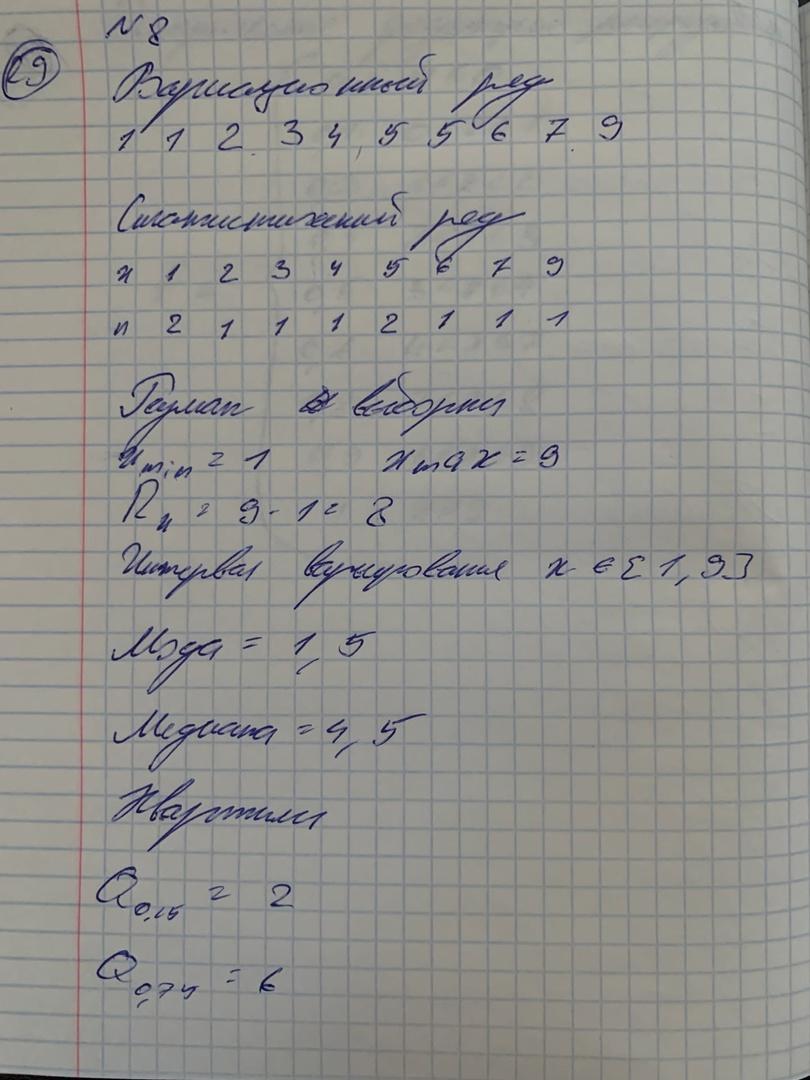 N 8
29
Вариационный ряд
1 1 2 3 4 5 5 6 7 9
Статистический ряд
x 1 2 3 4 5 6 7 9
n 2 1 1 1 2 1 1 1
Размах выборки
x min = 1 x max = 9
R x = 9 - 1 = 8
Интервал варьирования x ∈ [1, 9]
Мода = 1, 5
Медиана = 4, 5
Квартили
Q 0,25 = 2
Q 0,75 = 6